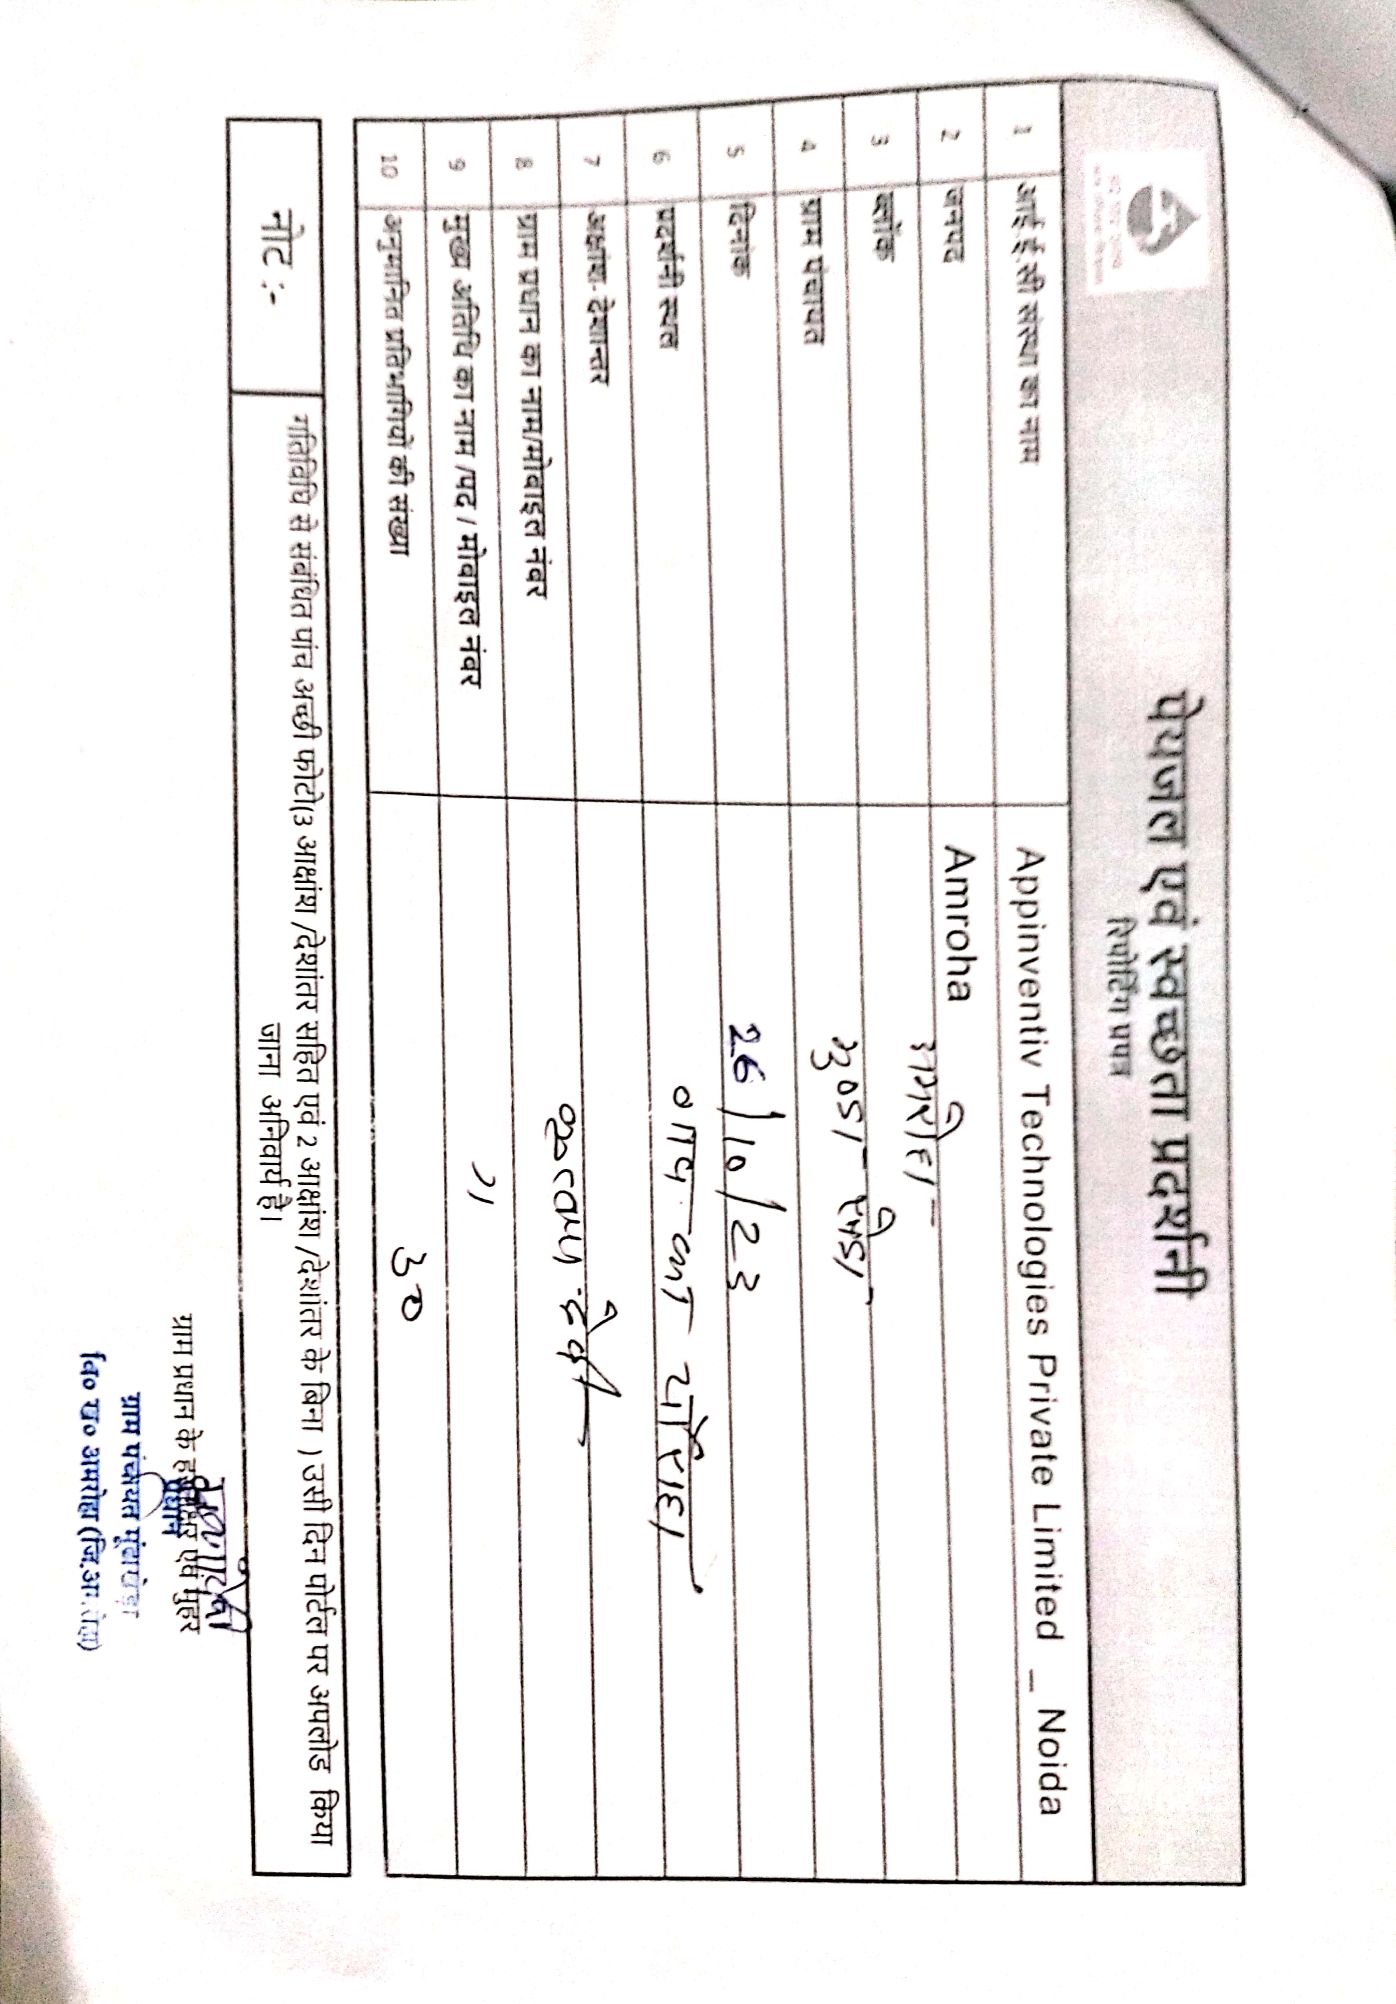 पेयजल एवं स्वच्छता प्रदर्शनी
रिपोर्टिंग प्रपत्र
1 आई.ई.सी संस्था का नाम Appinventiv Technologies Private Limited _ Noida
2 जनपद Amroha
3 ब्लॉक अमरोहा
4 ग्राम पंचायत मुण्डा खेडा
5 दिनांक 26/10/23
6 प्रदर्शनी स्थल का चौराहा
7 अक्षांश-देशान्तर
8 ग्राम प्रधान का नाम/मोबाइल नंबर देवी
9 मुख्य अतिथि का नाम /पद / मोबाइल नंबर "
10 अनुमानित प्रतिभागियों की संख्या 30
नोट:- गतिविधि से संबंधित पांच अच्छी फोटो(3 आक्षांश /देशांतर सहित एवं 2 आक्षांश /देशांतर के बिना ) उसी दिन पोर्टल पर अपलोड किया
जाना अनिवार्य है।
ग्राम प्रधान के हस्ताक्षर एवं मुहर
प्रधान
ग्राम पंचायत
वि० ख० अमरोहा